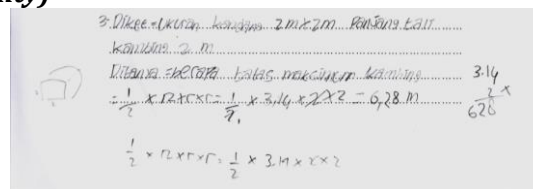 3. Diket = Ukuran kandang 2m x 2m Panjang tali
kambing 2 m
Ditanya = berapa batas maksimum kambing
= 1/2 x π x r x r = 1/2 x 3,14 x 2 x 2 = 6,28 m
3.14
2 x
628
1/2 x π x r x r = 1/2 x 3.14 x 2 x 2